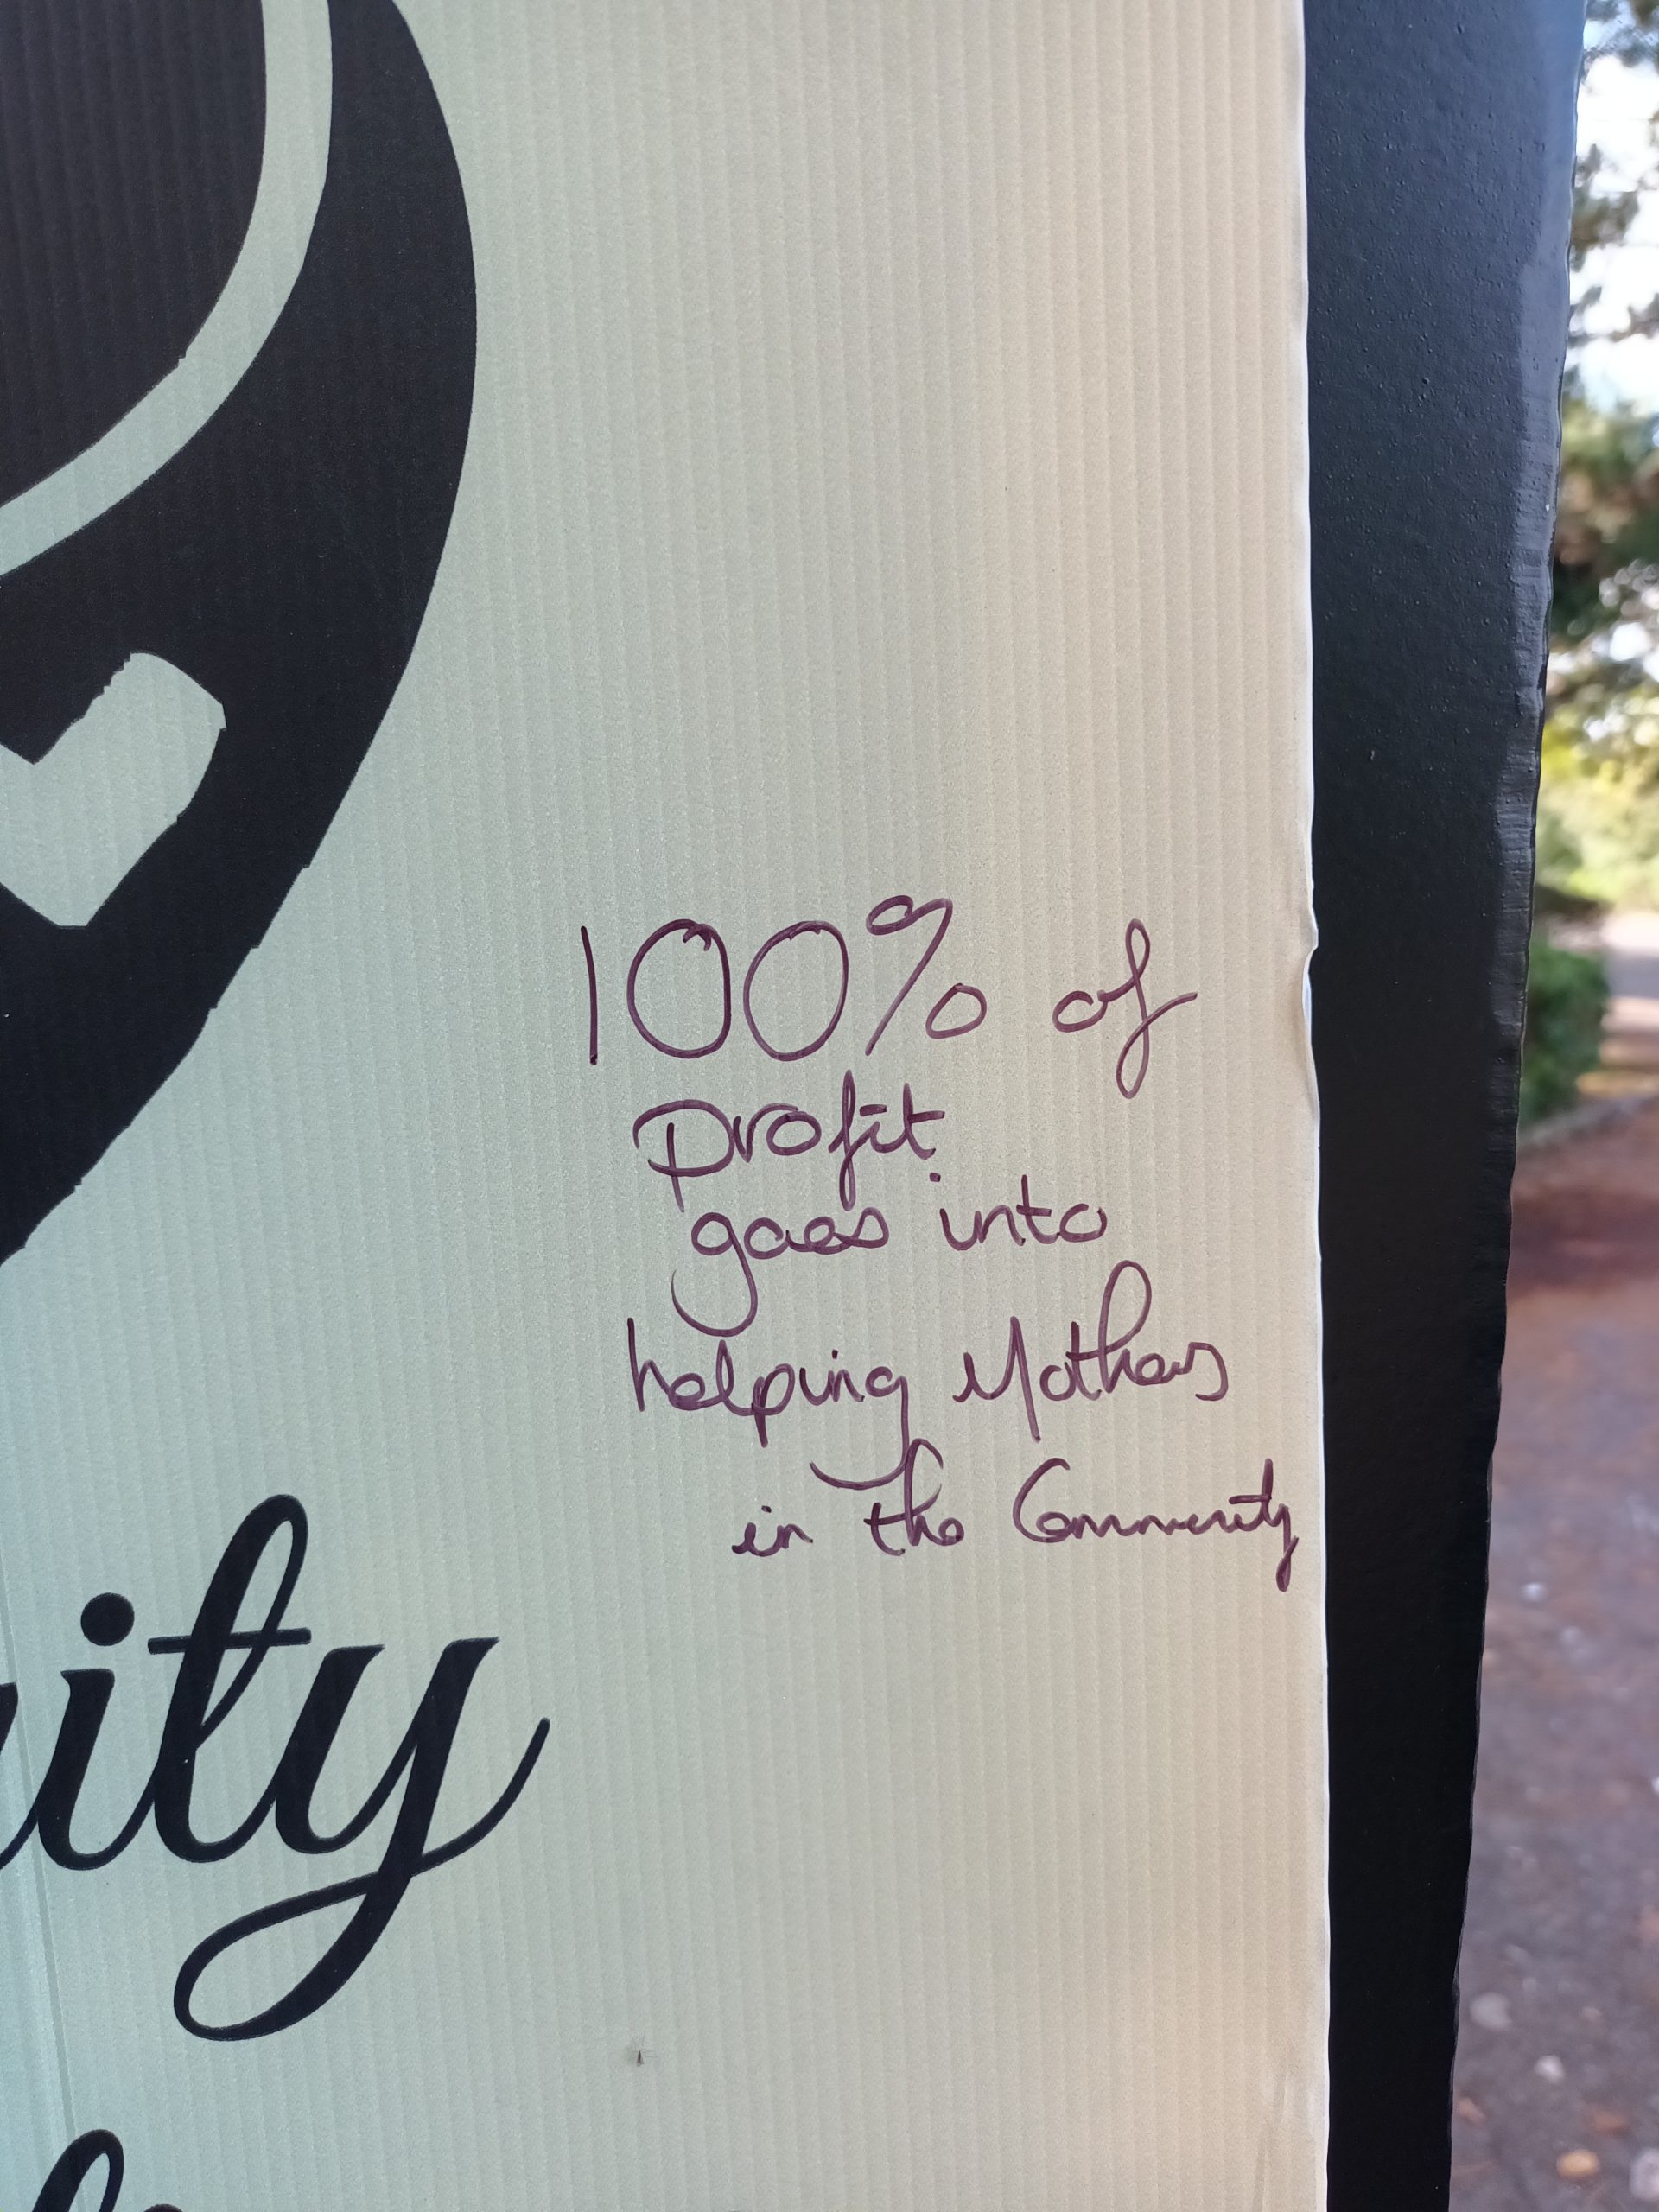 100% of
profit
goes into
helping Mothers
in the Community
ity